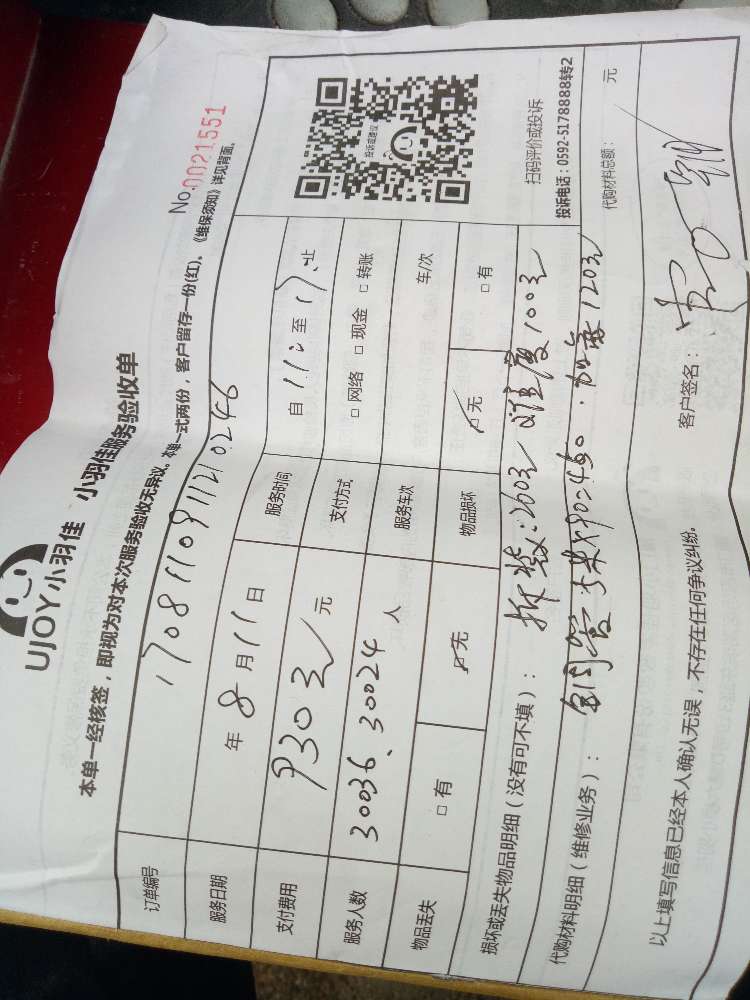 UJOY小羽佳 小羽佳服务验收单
No.0021551
本单一经核签，即视为对本次服务验收无异议。本单一式两份，客户留存一份(红)、《维保须知》详见背面。
订单编号 1708110911210246
服务日期 年 8 月 11 日 服务时间 自 11: 至 17: 止
支付费用 930元 元 支付方式 □ 网络 □ 现金 □ 转账
服务人数 30036、30024 人 服务车次 车/次
物品丢失 □ 有 □ 无 物品损坏 □ 无 □ 有
投诉或建议
扫码评价或投诉
投诉电话：0592-5178888转2
损坏或丢失物品明细（没有可不填）： 拆装：260元 难度100元
代购材料明细（维修业务）： 铜管5米×90=450．加氟120元
代购材料总额： 元
以上填写信息已经本人确认无误，不存在任何争议纠纷。
客户签名：